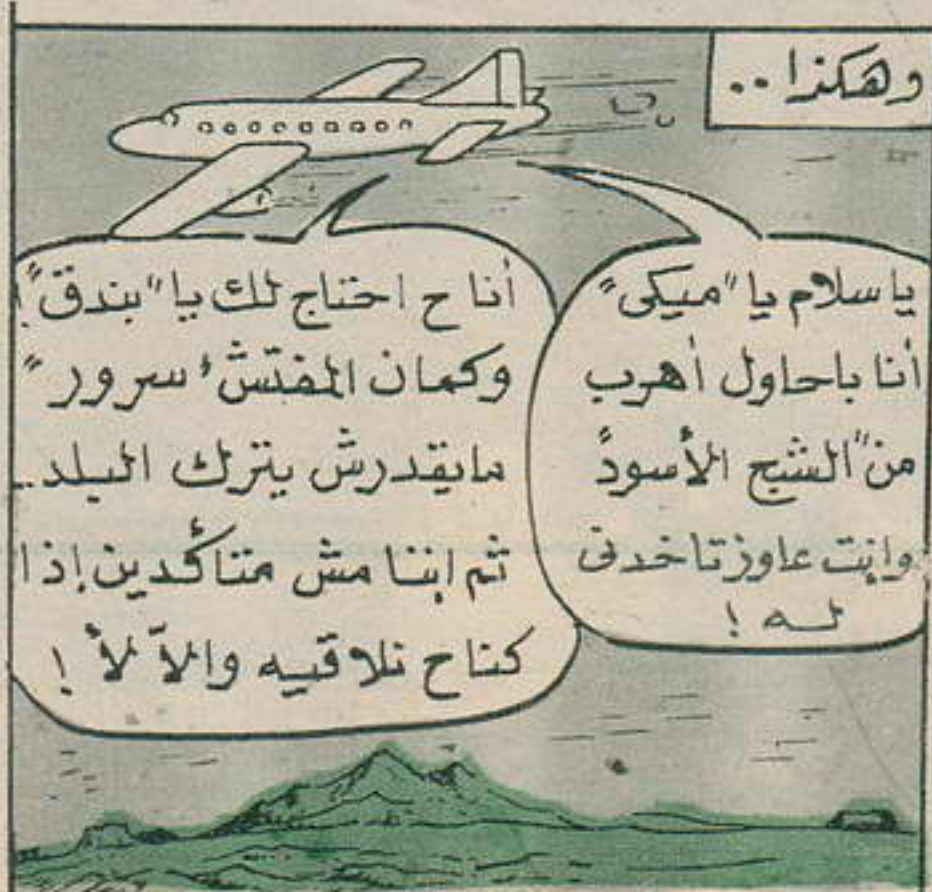 وهكذا ..
يا سلام يا "ميكى"
أنا باحاول أهرب
من "الشبح الأسود"
وانت عاوز تاخدنى
له !
أنا ح احتاج لك يا "بندق" !
وكمان المفتش "سرور"
مايقدرش يترك البلد ..
ثم اننا مش متأكدين إذا
كنا ح نلاقيه والاّ لأ !